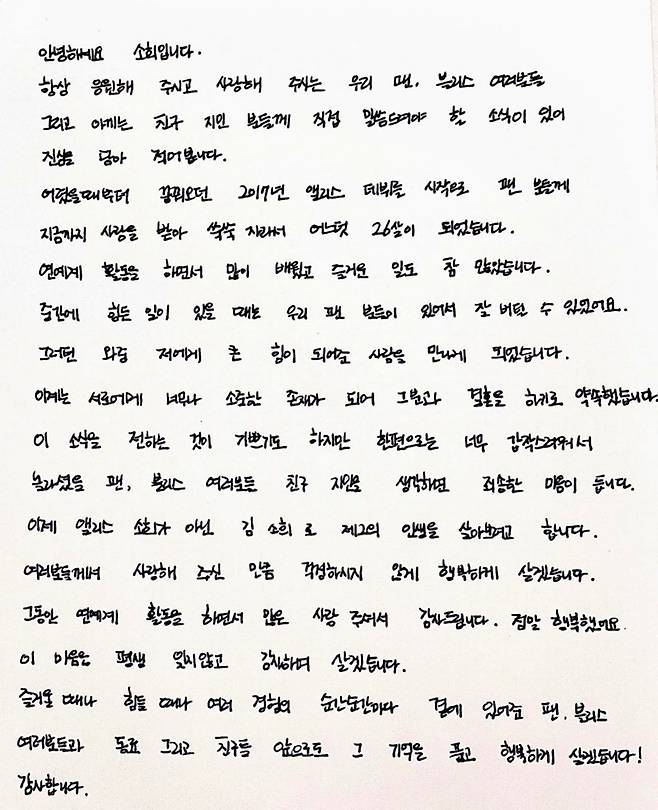 안녕하세요 소희입니다.
항상 응원해 주시고 사랑해 주시는 우리 팬, 블리스 여러분들
그리고 아끼는 친구 지인 분들께 직접 말씀드려야 할 소식이 있어
진심을 담아 적어봅니다.
어렸을때부터 꿈꿔오던 2017년 앨리스 데뷔를 시작으로 팬 분들께
지금까지 사랑을 받아 쑥쑥 자라서 어느덧 26살이 되었습니다.
연예계 활동을 하면서 많이 배웠고 즐거운 일도 참 많았습니다.
중간에 힘든 일이 있을 때는 우리 팬 분들이 있어서 잘 버틸 수 있었어요.
그러던 와중 저에게 큰 힘이 되어준 사람을 만나게 되었습니다.
이제는 서로에게 너무나 소중한 존재가 되어 그분과 결혼을 하기로 약속했습니다.
이 소식을 전하는 것이 기쁘기도 하지만 한편으로는 너무 갑작스러워서
놀라셨을 팬, 블리스 여러분들 친구 지인을 생각하면 죄송한 마음이 듭니다.
이제 앨리스 소희가 아닌 김 소희 로 제2의 인생을 살아보려고 합니다.
여러분들께서 사랑해 주신 만큼 걱정하시지 않게 행복하게 살겠습니다.
그동안 연예계 활동을 하면서 많은 사랑 주셔서 감사드립니다. 정말 행복했어요.
이 마음을 평생 잊지않고 감사하며 살겠습니다.
즐거울 때나 힘들 때나 여러 경험의 순간순간마다 곁에 있어준 팬, 블리스
여러분들과 동료 그리고 친구들 앞으로도 그 기억을 품고 행복하게 살겠습니다!
감사합니다.